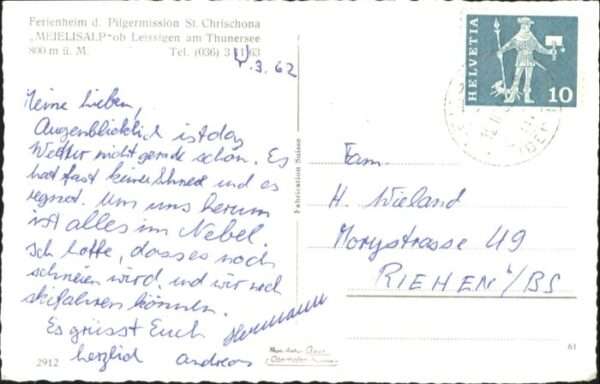 Ferienheim d. Pilgermission St. Chrischona
„MEIELISALP" ob Leissigen am Thunersee
800 m ü. M. Tel. (036) 3 11 63
.3.62
Meine Lieben,
Augenblicklich ist das
Wetter nicht gerade schön. Es
hat fast keinen Schnee und es
regnet. Um uns herum
ist alles im Nebel.
Ich hoffe, dass es noch
schneien wird, und wir noch
skifahren können.
Es grüsst Euch
herzlich Andreas
Hermann
2912
Fabrication Suisse
HELVETIA
10
Fam.
H. Wieland
Morystrasse 49
RIEHEN b/BS
61